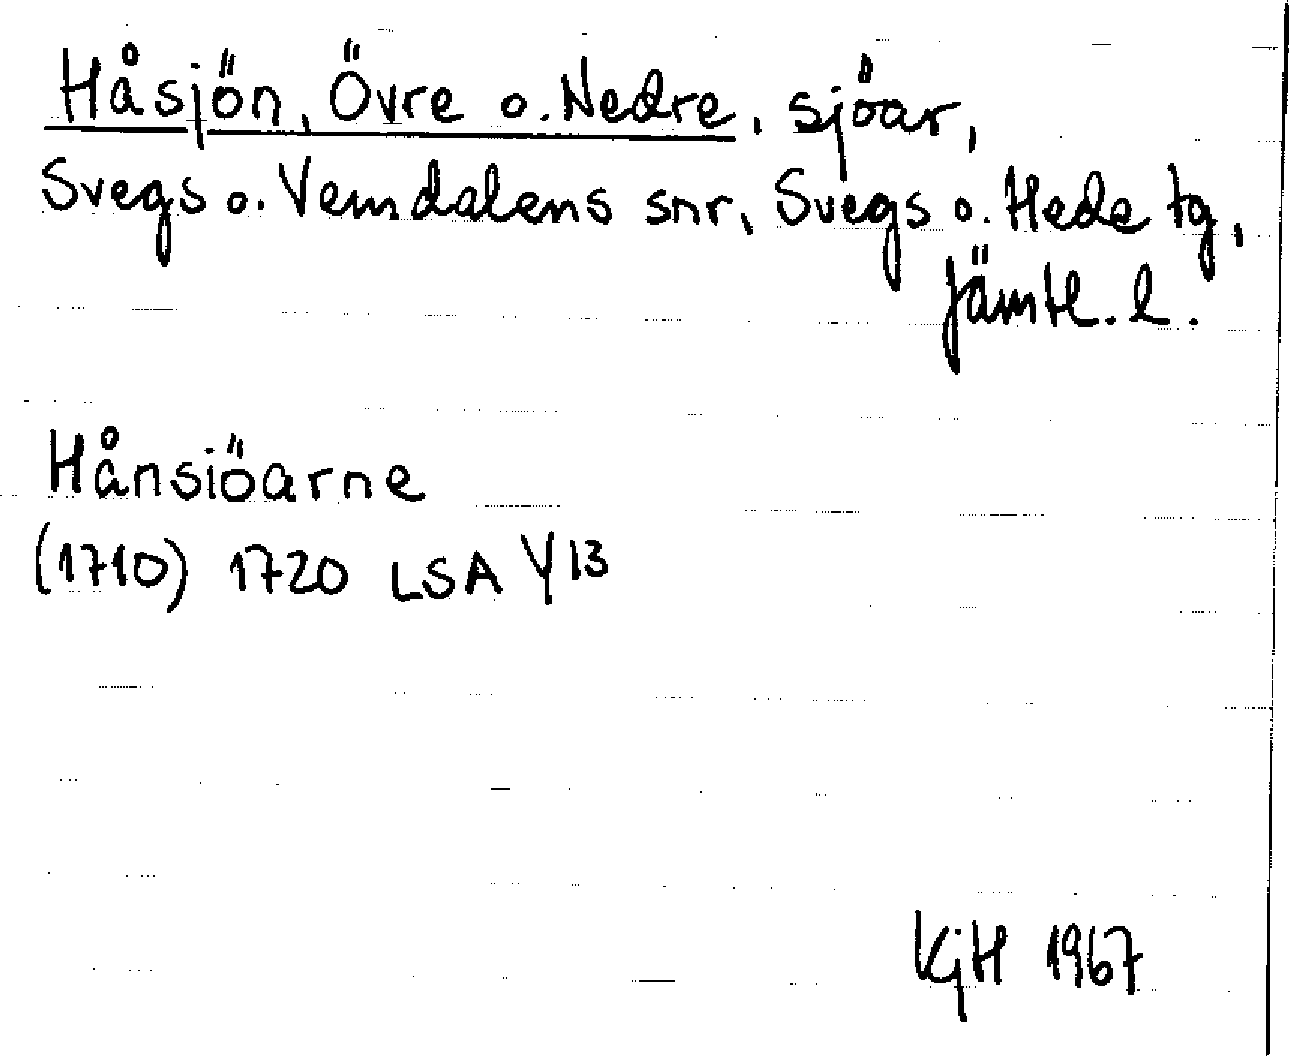 Håsjön, Övre o. Nedre, sjöar,
Svegs o. Vemdalens snr, Svegs o. Hede tg,
Jämtl. l.
Hånsiöarne
(1710) 1720 LSA Y13
KjH 1967